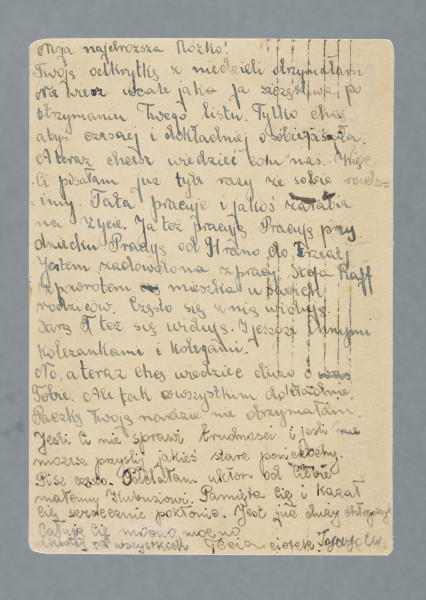 Moja najdroższa Rózko!
Twoją odkrytkę z niedzieli otrzymałam
Nie wiesz wcale jaka ja szczęśliwa po
otrzymaniu Twego listu. Tylko chcę
abyś częściej i dokładniej o sobie pisała.
A teraz chcesz wiedzieć co u nas. Więc
Ci pisałam już tyle razy że sobie radzi-
my. Tata pracuje i jakoś zarabia
na życie. Ja też pracuję. Pracuję przy
dziecku. Pracuję od 9 rano do
Jestem zadowolona z pracy. Stefa
z powrotem mieszka u swoich
rodziców. Często się z nią widuję.
Sarą też się widuję. I jeszcze innymi
koleżankami i kolegami.
No, a teraz chcę wiedzieć dużo o
Tobie. Ale tak o wszystkim dokładnie.
Paczkę Twoją narazie nie otrzymałam.
Jeśli Ci nie sprawi trudności i jeśli
możesz przyślij jakieś stare pończochy.
Pisz często. Oddałam ukłon od Ciebie
małemu Kubusiowi. Pamięta Cię i kazał
Cię serdecznie pokłonić. Jest już duży chłopczyk
Całuję Cię mocno mocno
od wszystkich